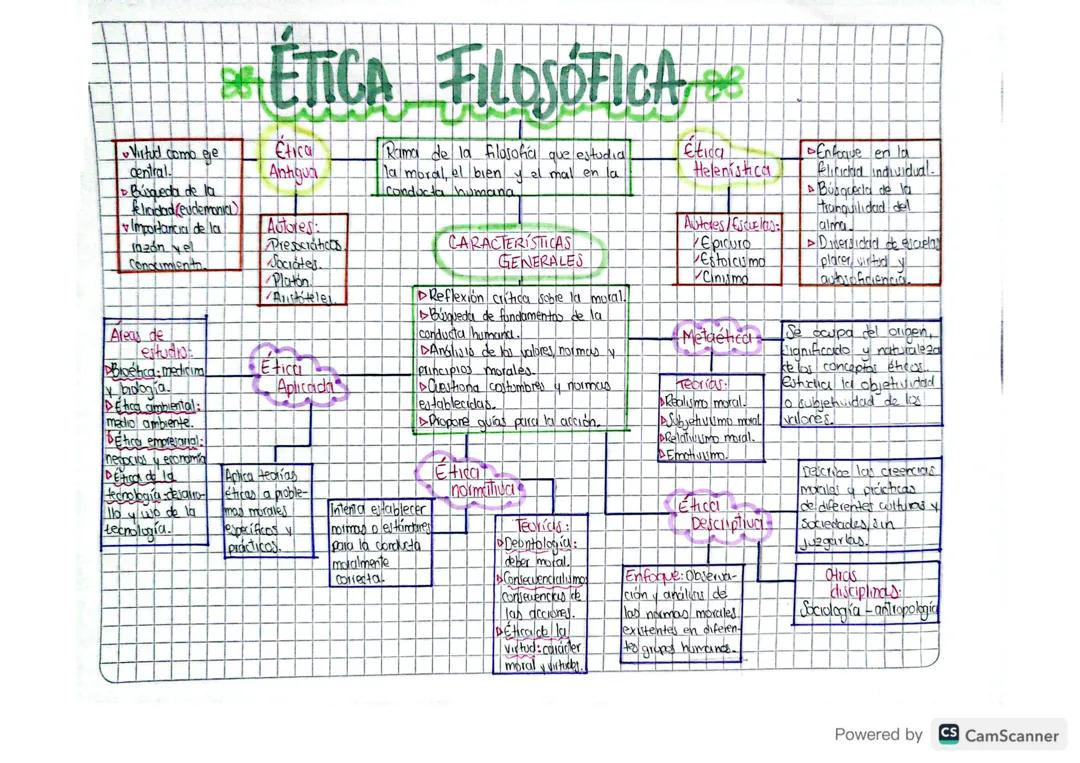 ÉTICA FILOSÓFICA
Virtud como eje
central.
Búsqueda de la
felicidad (eudemonia)
Importancia de la
razón y el
conocimiento.
Ética
Antigua
Autores:
Presocráticos.
Sócrates.
Platón.
Aristóteles.
Rama de la filosofía que estudia
la moral, el bien y el mal en la
conducta humana.
Ética
Helenística
Autores/Escuelas:
Epicuro
Estoicismo
Cinismo
Enfoque en la
felicidad individual.
Búsqueda de la
tranquilidad del
alma.
Diversidad de escuelas
placer, virtud y
autosuficiencia.
CARACTERÍSTICAS
GENERALES
Reflexión crítica sobre la moral.
Búsqueda de fundamentos de la
conducta humana.
Análisis de los valores, normas y
principios morales.
Cuestiona costumbres y normas
establecidas.
Propone guías para la acción.
Áreas de
estudio:
Bioética: medicina
y biología.
Ética ambiental:
medio ambiente.
Ética empresarial:
negocios y economía
Ética de la
tecnología: desarro-
llo y uso de la
tecnología.
Ética
Aplicada
Aplica teorías
éticas a proble-
mas morales
específicos y
prácticos.
Ética
normativa
Intenta establecer
normas o estándares
para la conducta
moralmente
correcta.
Teorías:
Deontología:
deber moral.
Consecuencialismo:
consecuencias de
las acciones.
Ética de la
virtud: carácter
moral y virtudes.
Metaética
Teorías:
Realismo moral.
Subjetivismo moral
Relativismo moral.
Emotivismo.
Se ocupa del origen,
significado y naturaleza
de los conceptos éticos.
Estudia la objetividad
o subjetividad de los
valores.
Ética
Descriptiva
Describe las creencias
morales y prácticas
de diferentes culturas y
sociedades, sin
juzgarlas.
Enfoque: Observa-
ción y análisis de
las normas morales
existentes en diferen-
tes grupos humanos.
Otras
disciplinas:
Sociología - antropología
Powered by CS CamScanner